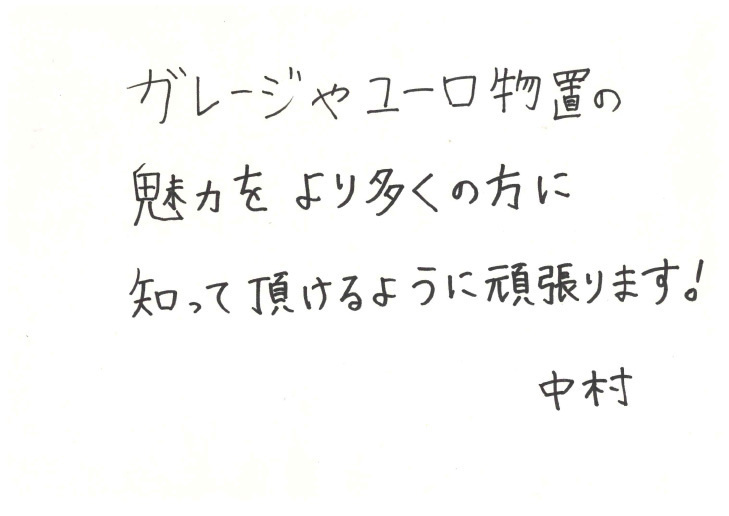 ガレージやユーロ物置の
魅力をより多くの方に
知って頂けるように頑張ります!
中村